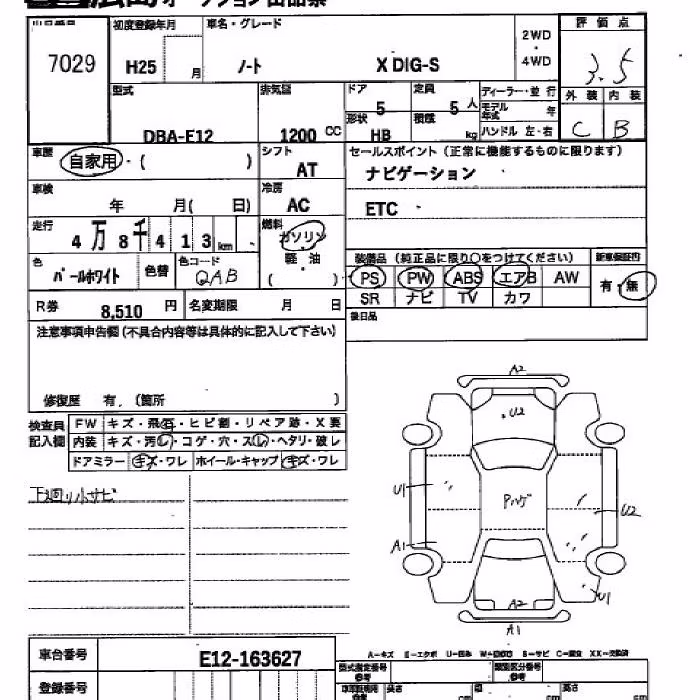 広島オークション出品票
出品番号 初度登録年月 車名・グレード 2WD ・ 4WD 評価点
7029 H25 月 ノート X DIG-S 3.5
型式 排気量 ドア 定員 ディーラー・並行 外装 内装
5 5人 モデル年式 年
DBA-E12 1200 CC 形状 HB 積載 kg ハンドル 左・右 C B
車歴 自家用・( ) シフト AT セールスポイント(正常に機能するものに限ります)
ナビゲーション
車検 年 月( 日) 冷房 AC ETC
走行 4万8千413km 燃料 ガソリン
軽・油
( )
装備品(純正品に限り○をつけてください) 新車保証書
色 パールホワイト 色替 色コード QAB
PS PW ABS エアB AW 有・無
SR ナビ TV カワ
R券 8,510 円 名変期限 月 日
後日品
注意事項申告欄(不具合内容等は具体的に記入して下さい)
修復歴 有.(箇所 )
検査員記入欄 FW キズ・飛石・ヒビ割・リペア跡・X要
内装 キズ・汚れ・コゲ・穴・スレ・ヘタリ・破レ
ドアミラー キズ・ワレ ホイール・キャップ キズ・ワレ
下廻り小サビ
A2
U2
U1
Pルーフ
U2
A1
U1
A2
A1
車台番号 E12-163627
A-キズ E-エクボ U-凹み
登録番号 型式指定番号 類別区分番号
長さ cm 幅 cm 高さ cm